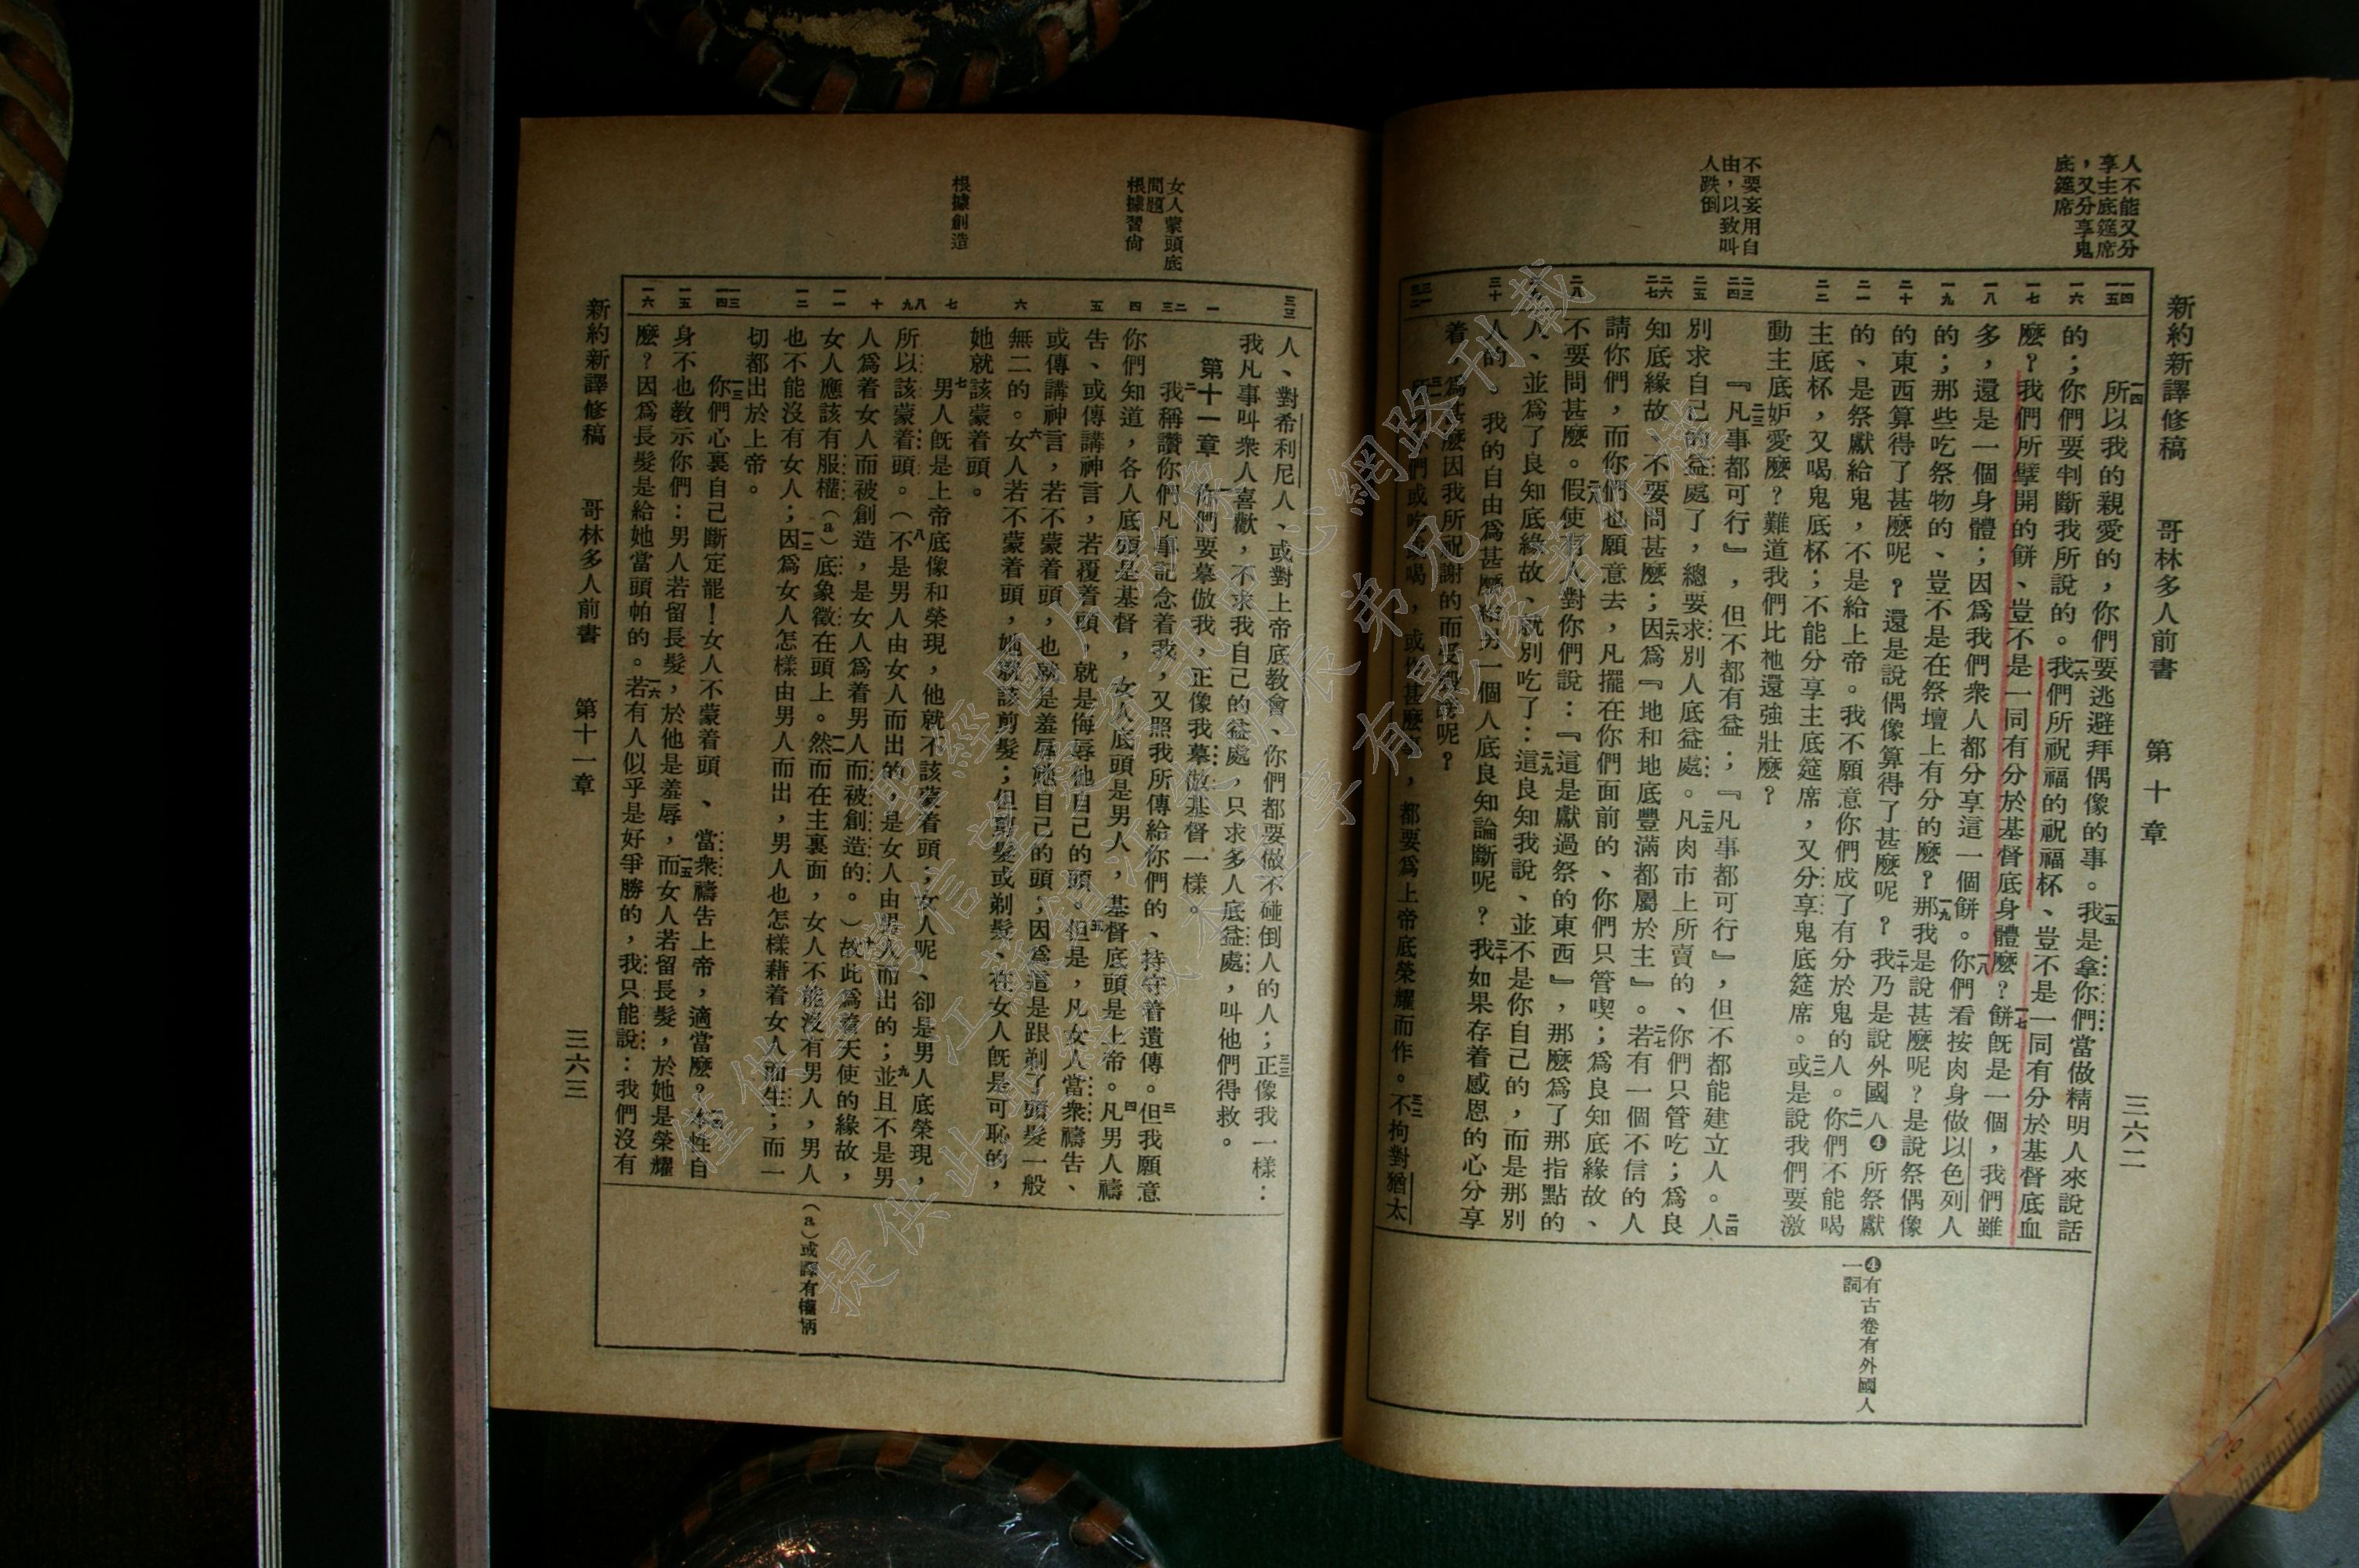 新約新譯修稿　哥林多人前書　第十章　三六二
人不能又分
享主底筵席
，又分享鬼
底筵席
不要妄用自
由，以致叫
人跌倒
一四
一五
一六
一七
一八
一九
二十
二一
二二
二三
二四
二五
二六
二七
二八
三十
一四所以我的親愛的，你們要逃避拜偶像的事。一五我是拿你們當做精明人來說話
的；你們要判斷我所說的。一六我們所祝福的祝福杯、豈不是一同有分於基督底血
麼？我們所擘開的餅、豈不是一同有分於基督底身體麼？一七餅旣是一個，我們雖
多，還是一個身體；因爲我們衆人都分享這一個餅。一八你們看按肉身做以色列人
的；那些吃祭物的、豈不是在祭壇上有分的麼？一九那我是說甚麼呢？是說祭偶像
的東西算得了甚麼呢？還是說偶像算得了甚麼呢？二十我乃是說外國人❹所祭獻
的、是祭獻給鬼，不是給上帝。我不願意你們成了有分於鬼的人。二一你們不能喝
主底杯，又喝鬼底杯；不能分享主底筵席，又分享鬼底筵席。二二或是說我們要激
動主底妒愛麼？難道我們比祂還強壯麼？
二三『凡事都可行』，但不都有益；『凡事都可行』，但不都能建立人。二四人
別求自己的益處了，總要求別人底益處。二五凡肉市上所賣的、你們只管吃；爲良
知底緣故、不要問甚麼；二六因爲『地和地底豐滿都屬於主』。二七若有一個不信的人
請你們，而你們也願意去，凡擺在你們面前的、你們只管喫；爲良知底緣故、
不要問甚麼。二八假使有人對你們說：『這是獻過祭的東西』，那麼爲了那指點的
人、並爲了良知底緣故、就別吃了：二九這良知我說、並不是你自己的，而是那別
人的。我的自由爲甚麼給另一個人底良知論斷呢？三十我如果存着感恩的心分享
着，爲甚麼因我所祝謝的而受毀謗呢？
三一所以你們或吃或喝，或作甚麼，都要爲上帝底榮耀而作。三二不拘對猶太
❹有古卷有外國人
一詞
女人蒙頭底
問題
根據習尙
根據創造
三三
一
二
三
四
五
六
七
八
九
十
一一
一二
一三
一四
一五
一六
人、對希利尼人、或對上帝底教會、你們都要做不碰倒人的人；三三正像我一樣：
我凡事叫衆人喜歡，不求我自己的益處，只求多人底益處，叫他們得救。
第十一章　一你們要摹倣我，正像我摹倣基督一樣。
二我稱讚你們凡事記念着我，又照我所傳給你們的、持守着遺傳。三但我願意
你們知道，各人底頭是基督，女人底頭是男人，基督底頭是上帝。四凡男人禱
告、或傳講神言，若覆着頭，就是侮辱他自己的頭。五但是，凡女人當衆禱告、
或傳講神言，若不蒙着頭，也就是羞辱她自己的頭，因爲這是跟剃了頭髮一般
無二的。六女人若不蒙着頭，她就該剪髮；但剪髮或剃髮、在女人旣是可恥的，
她就該蒙着頭。
七男人旣是上帝底像和榮現，他就不該蒙着頭；女人呢、卻是男人底榮現，
所以該蒙着頭。（八不是男人由女人而出的，是女人由男人而出的；九並且不是男
人爲着女人而被創造，是女人爲着男人而被創造的。）十故此爲着天使的緣故，
女人應該有服權（a）底象徵在頭上。一一然而在主裏面，女人不能沒有男人，男人
也不能沒有女人；一二因爲女人怎樣由男人而出，男人也怎樣藉着女人而生；而一
切都出於上帝。
一三你們心裏自己斷定罷！女人不蒙着頭、當衆禱告上帝，適當麼？一四本性自
身不也教示你們：男人若留長髮，於他是羞辱，一五而女人若留長髮，於她是榮耀
麼？因爲長髮是給她當頭帕的。一六若有人似乎是好爭勝的，我只能說：我們沒有
（a）或譯有權柄
新約新譯修稿　哥林多人前書　第十一章　三六三